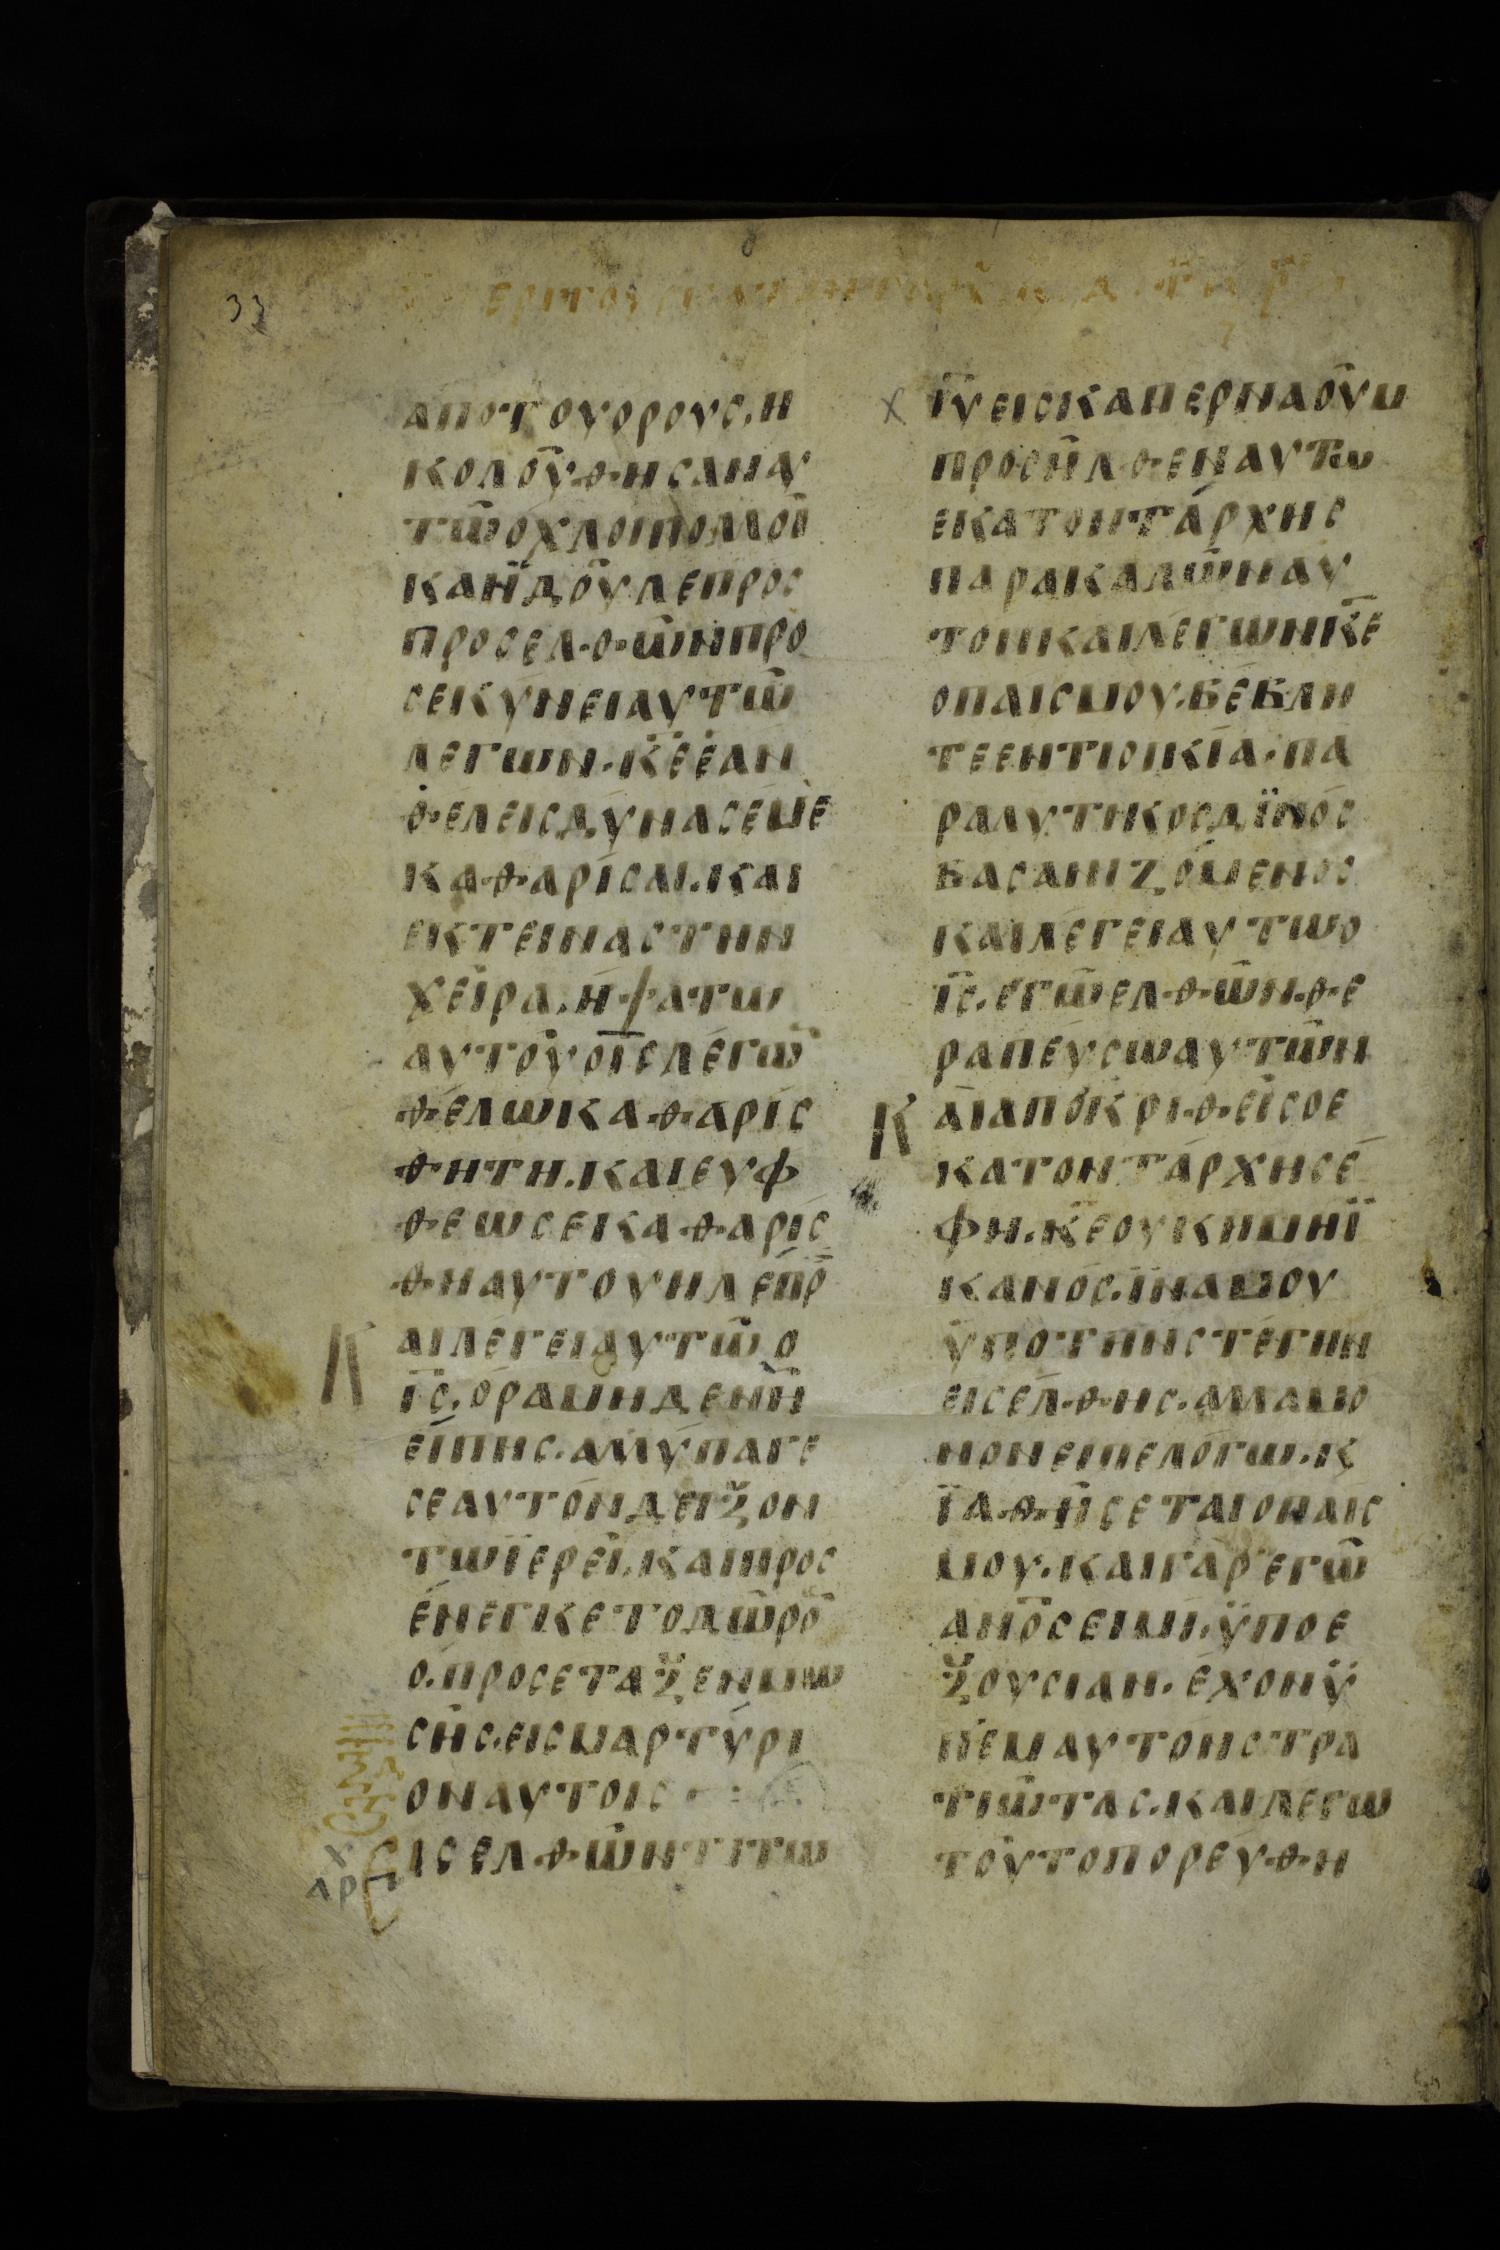 33
ΑΠΟΤΟΥΟΡΟΥΣ.Η
ΚΟΛΟΥΘΗΣΑΝΑΥ
ΤΩΟΧΛΟΙΠΟΛΛΟΙ
ΚΑΙΪΔΟΥΛΕΠΡΟΣ
ΠΡΟΣΕΛΘΩΝΠΡΟ
ΣΕΚΥΝΕΙΑΥΤΩ
ΛΕΓΩΝ.Κ̅Ε̅ΕΑΝ
ΘΕΛΕΙΣΔΥΝΑΣΕΜΕ
ΚΑΘΑΡΙΣΑΙ.ΚΑΙ
ΕΚΤΕΙΝΑΣΤΗΝ
ΧΕΙΡΑ.ΗΨΑΤΩ
ΑΥΤΟΥΟΙ̅Σ̅ΛΕΓΩ̅
ΘΕΛΩΚΑΘΑΡΙΣ
ΘΗΤΗ.ΚΑΙΕΥΦ
ΘΕΩΣΕΚΑΘΑΡΙΣ
ΘΗΑΥΤΟΥΗΛΕΠΡ̅Ο̅
ΚΑΙΛΕΓΕΙΑΥΤΩΟ
Ι̅Σ̅.ΟΡΑΜΗΔΕΝΗ
ΕΙΠΗΣ.ΑΛΛΥΠΑΓΕ
ΣΕΑΥΤΟΝΔΕΙΞΟΝ
ΤΩΪΕΡΕΙ.ΚΑΙΠΡΟΣ
ΕΝΕΓΚΕΤΟΔΩΡΟ̅
Ο.ΠΡΟΣΕΤΑΞΕΝΜΩ
ΣΗΣ.ΕΙΣΜΑΡΤΥΡΙ
ΟΝΑΥΤΟΙΣ
ΕΙΣΕΛΘΩΝΤΙΤΩ
Χ
ΑΡ
Χ Ι̅Υ̅ΕΙΣΚΑΠΕΡΝΑΟΥΜ
ΠΡΟΣΗΛΘΕΝΑΥΤΩ
ΕΚΑΤΟΝΤΑΡΧΗΣ
ΠΑΡΑΚΑΛΩΝΑΥ
ΤΟΝΚΑΙΛΕΓΩΝΚ̅Ε̅
ΟΠΑΙΣΜΟΥ.ΒΕΒΛΗ
ΤΕΕΝΤΙΟΙΚΙΑ.ΠΑ
ΡΑΛΥΤΗΚΟΣΔΪΝΟΣ
ΒΑΣΑΝΙΖΟΜΕΝΟΣ
ΚΑΙΛΕΓΕΙΑΥΤΩΟ
Ι̅Σ̅.ΕΓΩΕΛΘΩΝΘΕ
ΡΑΠΕΥΣΩΑΥΤΩΝ
ΚΑΙΑΠΟΚΡΙΘΕΙΣΟΕ
ΚΑΤΟΝΤΑΡΧΗΣΕ
ΦΗ.Κ̅Ε̅ΟΥΚΗΜΗΪ
ΚΑΝΟΣ.ΪΝΑΜΟΥ
ΫΠΟΤΗΝΣΤΕΓΗΝ
ΕΙΣΕΛΘΗΣ.ΑΛΛΑΜΟ
ΝΟΝΕΙΠΕΛΟΓΩ.Κ
ΪΑΘΗΣΕΤΑΙΟΠΑΙΣ
ΜΟΥ.ΚΑΙΓΑΡΕΓΩ
ΑΝ̅Ο̅Σ̅ΕΙΜΙ.ΫΠΟΕ
ΞΟΥΣΙΑΝ.ΕΧΟΝΫ
ΠΕΜΑΥΤΟΝΣΤΡΑ
ΤΙΩΤΑΣ.ΚΑΙΛΕΓΩ
ΤΟΥΤΟΠΟΡΕΥΘΗ